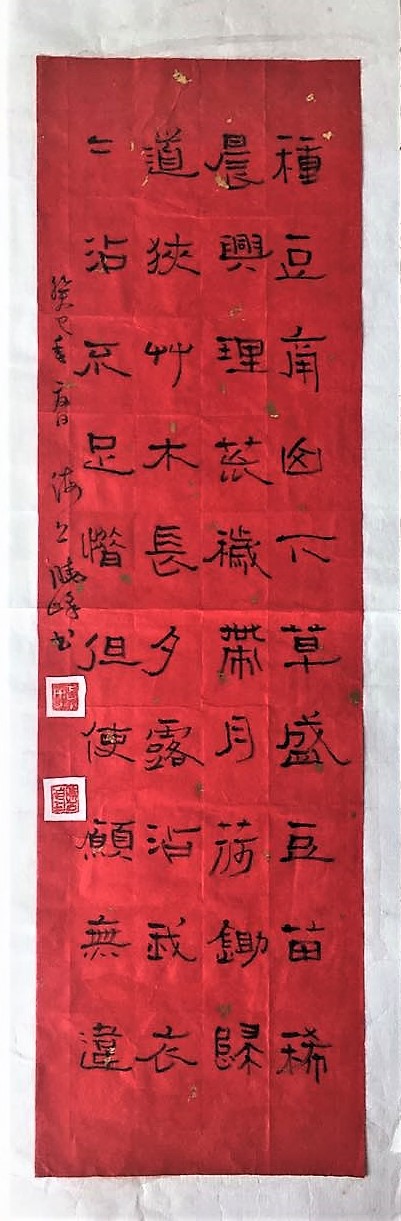 種豆南山下草盛豆苗稀
晨興理荒穢帶月荷鋤歸
道狹艸木長夕露沾我衣
二沾不足惜但使願無違
癸巳季春 海上勝峰书